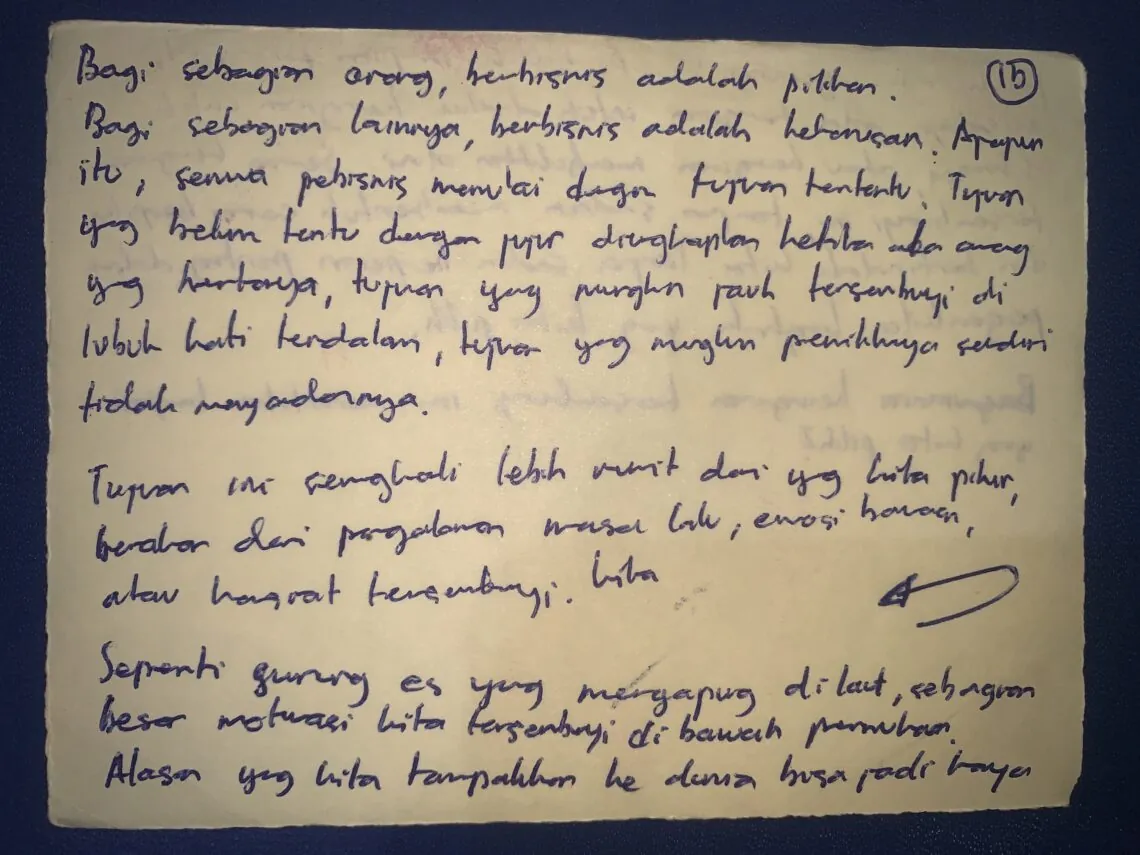 Bagi sebagian orang, berbisnis adalah pilihan. 15
Bagi sebagian lainnya, berbisnis adalah keharusan. Apapun
itu, semua pebisnis memulai dengan tujuan tertentu. Tujuan
yag belum tentu dengan jujur diungkapkan ketika ada orang
yag bertanya, tujuan yang mungkin jauh tersembunyi di
lubuk hati terdalam, tujuan yag mungkin pemiliknya sendiri
tidak menyadarinya.
Tujuan ini seringkali lebih rumit dari yag kita pikir,
berakar dari pengalaman masa lalu, emosi bawaan,
atau hasrat tersembunyi. kita
Seperti gunung es yang mengapung di laut, sebagian
besar motivasi kita tersembunyi di bawah permukaan.
Alasan yag kita tampakkan ke dunia bisa jadi hanya